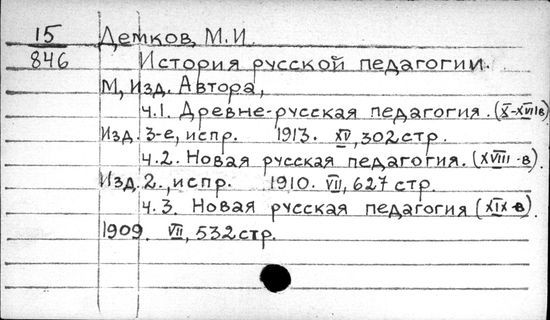 15 Демков, М.И.
846 История русской педагогии.
М, Изд. Автора,
ч.1. Древне-русская педагогия. (X-XVIIв)
Изд. 3-е, испр. 1913. XV, 302 стр.
ч.2. Новая русская педагогия. (XVIII в.)
Изд. 2., испр. 1910. VII, 627 стр.
ч.3. Новая русская педагогия (XIX в)
1909. VII, 532 стр.